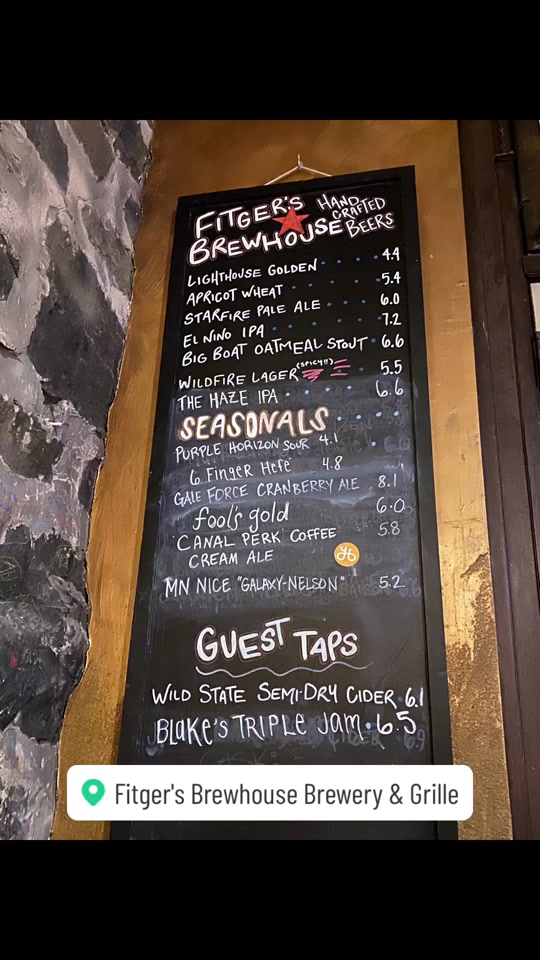 FITGER'S HAND
CRAFTED
BREWHOUSE BEERS
LIGHTHOUSE GOLDEN 4.4
APRICOT WHEAT 5.4
STARFIRE PALE ALE 6.0
EL NINO IPA 7.2
BIG BOAT OATMEAL STOUT 6.6
WILDFIRE LAGER (SPICY!!) 5.5
THE HAZE IPA 6.6
SEASONALS
PURPLE HORIZON SOUR 4.1
6 Finger Hefe 4.8
GALE FORCE CRANBERRY ALE 8.1
fool's gold 6.0
"CANAL PERK" COFFEE 5.8
CREAM ALE
MN NICE "GALAXY-NELSON" 5.2
GUEST TAPS
WILD STATE SEMI-DRY CIDER 6.1
BLAKE'S TRIPLE JAM 6.5
Fitger's Brewhouse Brewery & Grille